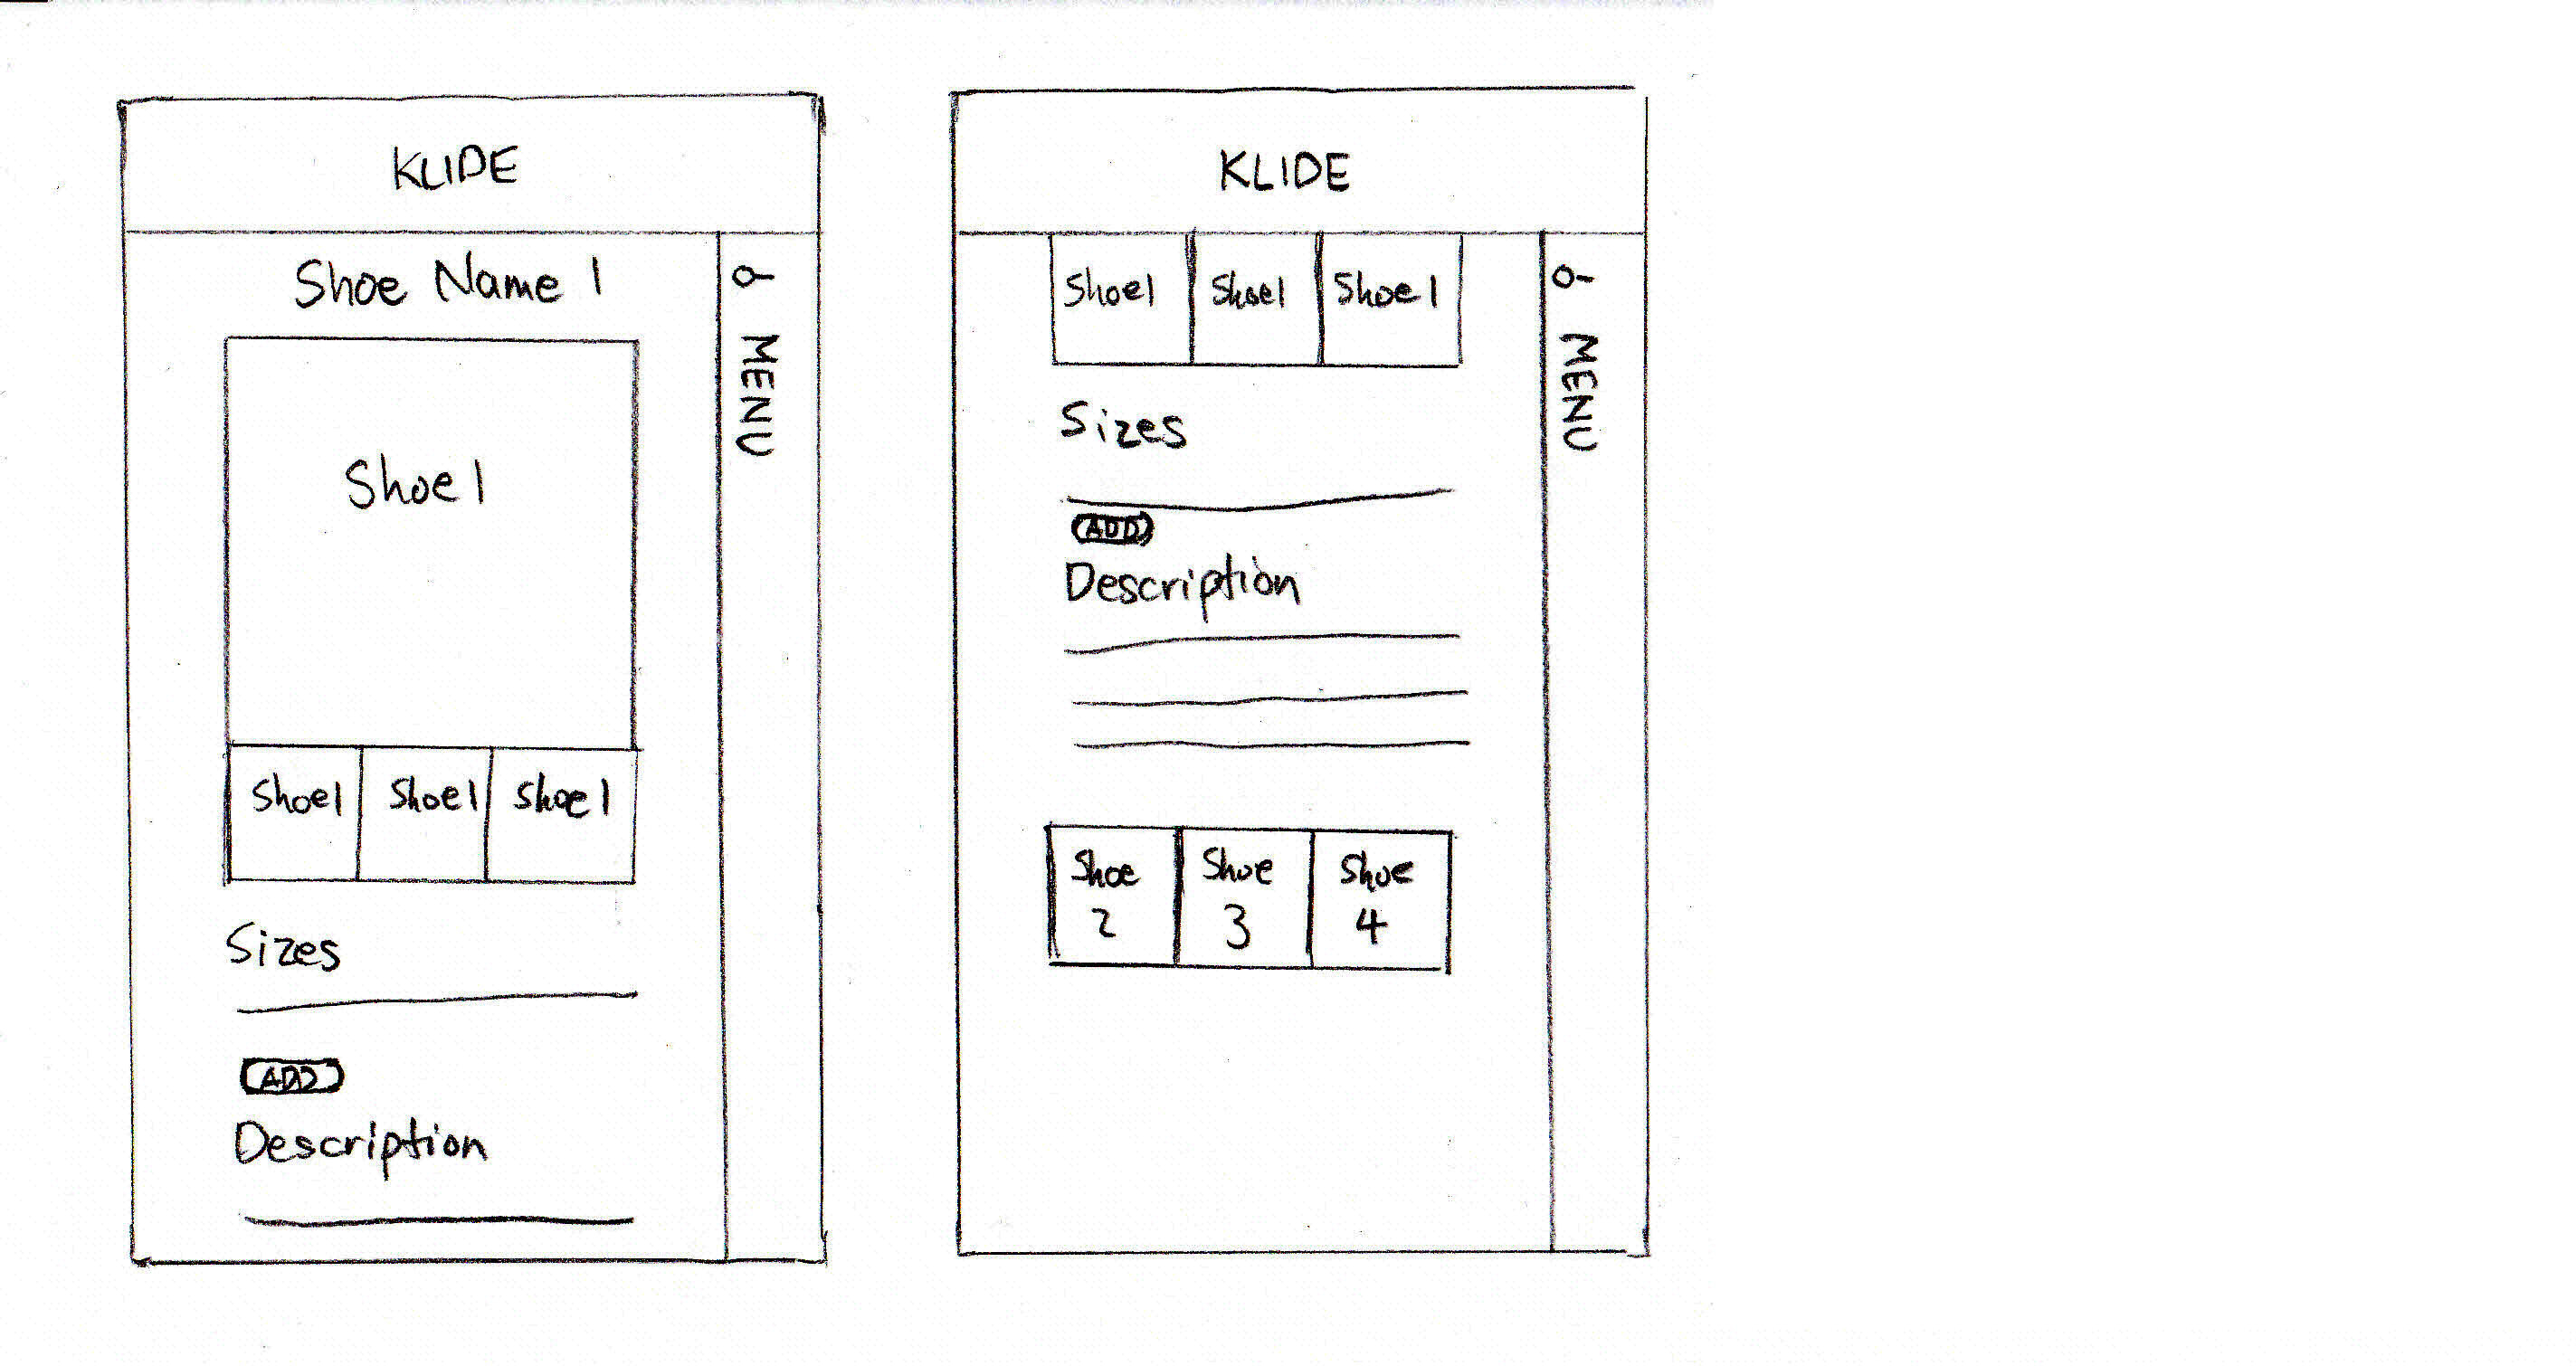 KLIDE
Shoe Name 1
MENU
Shoe 1
Shoe 1 Shoe 1 Shoe 1
Sizes
ADD
Description
KLIDE
Shoe 1 Shoe 1 Shoe 1
MENU
Sizes
ADD
Description
Shoe 2 Shoe 3 Shoe 4